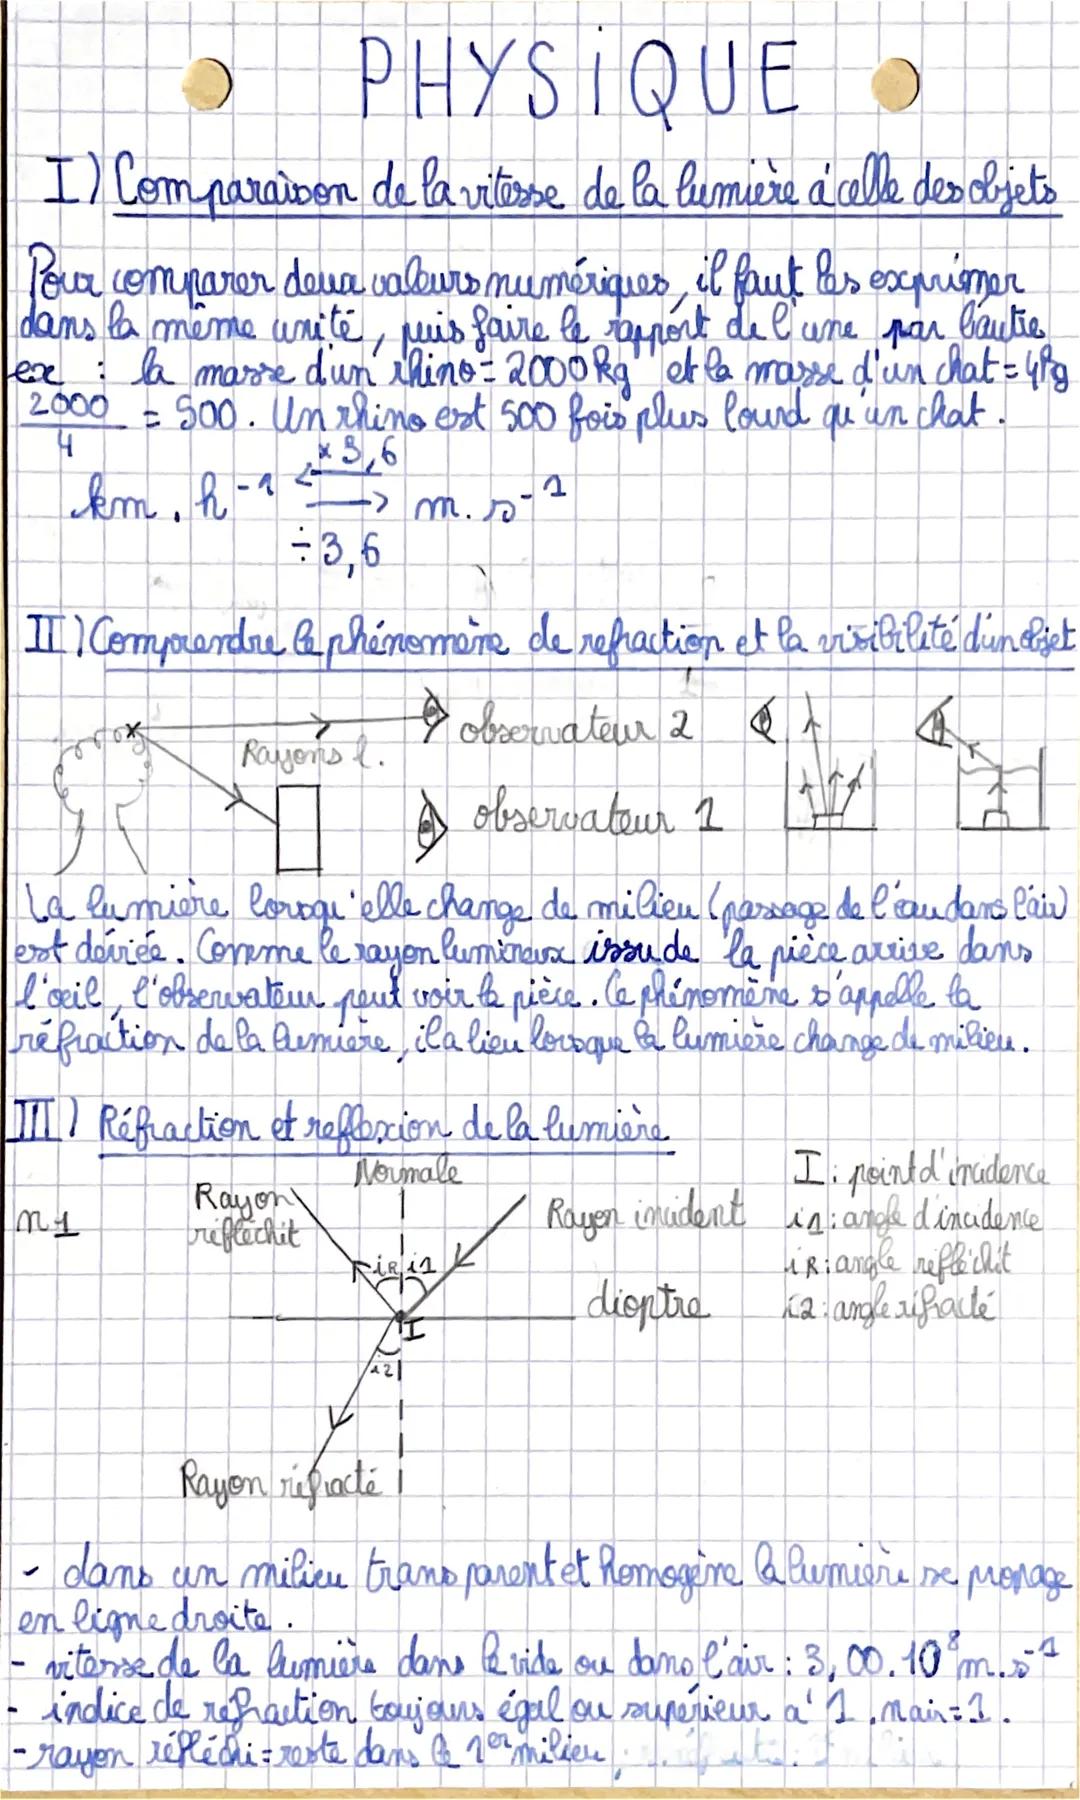 PHYSIQUE
I) Comparaison de la vitesse de la lumière à celle des objets
Pour comparer deux valeurs numériques, il faut les exprimer
dans la même unité, puis faire le rapport de l'une par l'autre
ex : la masse d'un rhino = 2000 kg et la masse d'un chat = 4 kg
2000/4 = 500. Un rhino est 500 fois plus lourd qu'un chat.
× 3,6
km . h⁻¹ ⇄ m. s⁻¹
÷ 3,6
II) Comprendre le phénomène de refraction et la visibilité d'un objet
observateur 2
Rayons l.
observateur 1
La lumière lorsqu'elle change de milieu (passage de l'eau dans l'air)
est déviée. Comme le rayon lumineux issu de la pièce arrive dans
l'œil, l'observateur peut voir la pièce. Ce phénomène s'appelle la
réfraction de la lumière, il a lieu lorsque la lumière change de milieu.
III) Réfraction et reflexion de la lumière
Normale
I : point d'incidence
Rayon
réfléchit
n1
Rayon incident
i1 : angle d'incidence
iR i1
iR : angle réfléchit
dioptre
i2 : angle réfracté
I
i2
Rayon réfracté
- dans un milieu transparent et homogène la lumière se propage
en ligne droite.
- vitesse de la lumière dans le vide ou dans l'air : 3,00.10⁸ m.s⁻¹
- indice de réfraction toujours égal ou supérieur à 1. nair=1.
- rayon réfléchi = reste dans le 1er milieu